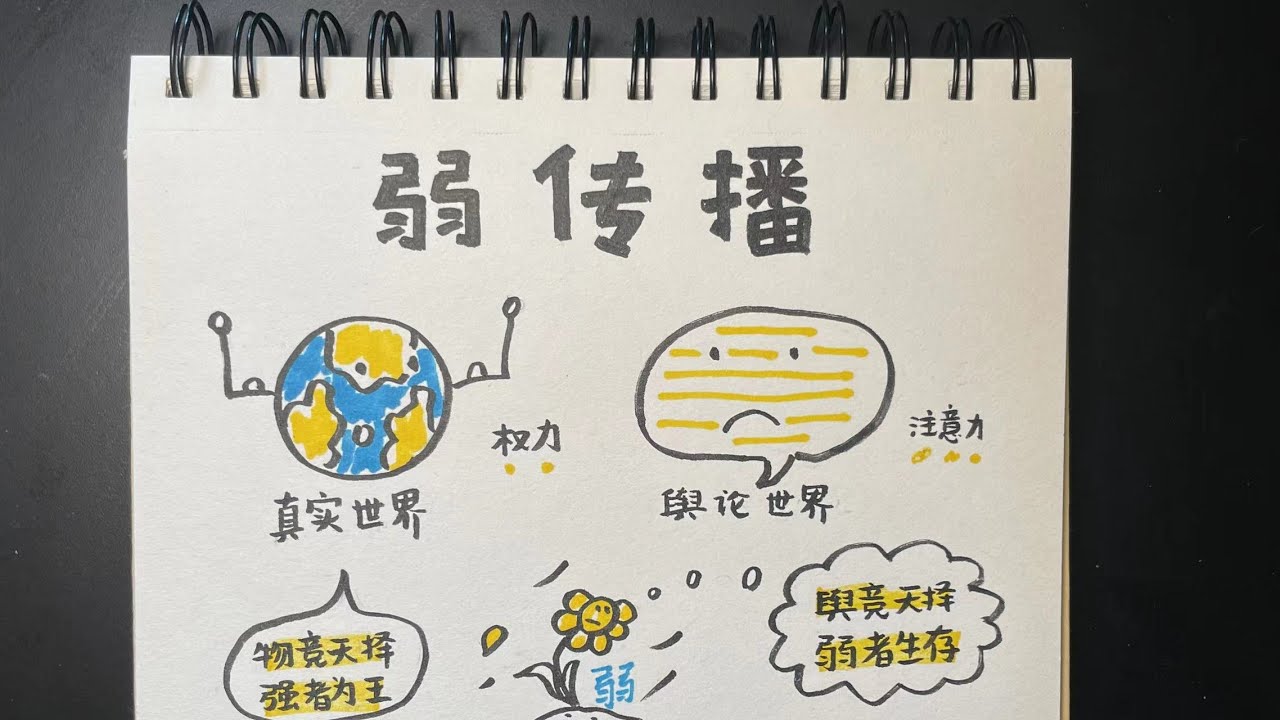 弱传播
权力
注意力
真实世界
舆论世界
物竞天择
强者为王
弱
舆竞天择
弱者生存